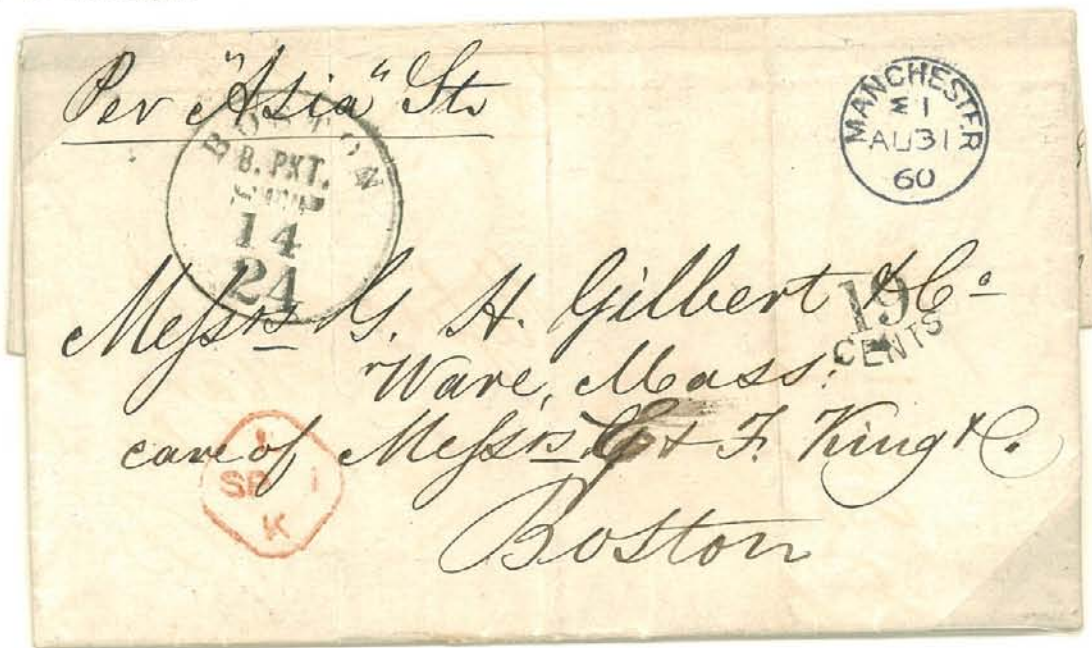 Per "Asia" Str
BOSTON
B. PKT.
14
24
MANCHESTER
AU31
60
Messrs G. H. Gilbert & Co
19
CENTS
Ware, Mass.
care of Messrs G & F. King & C.
SP 1
K
Boston